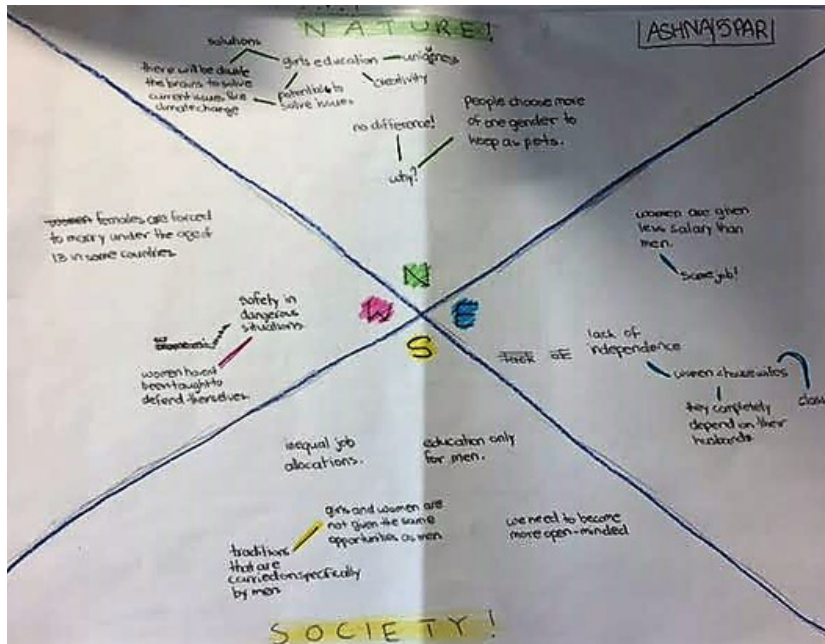 NATURE!
ASHNA/5PAR
solutions
girls education
uniqness
creativity
there will be double
the brains to solve
current issues like
climate change
potential to
solve issues.
no difference!
people choose more
of one gender to
keep as pets.
why?
women females are forced
to marry under the age of
13 in some countries
women are given
less salary than
men.
same job!
N
W
E
S
safety in
dangerous
situations
women havent
been taught to
defend themselves.
lack of
lack of
independence
women = housewifes
they completely
depend on their
husbands
inequal job
allocations.
education only
for men.
girls and women are
not given the same
opportunities as men
traditions
that are
carried on specifically
by men
we need to become
more open-minded
SOCIETY!